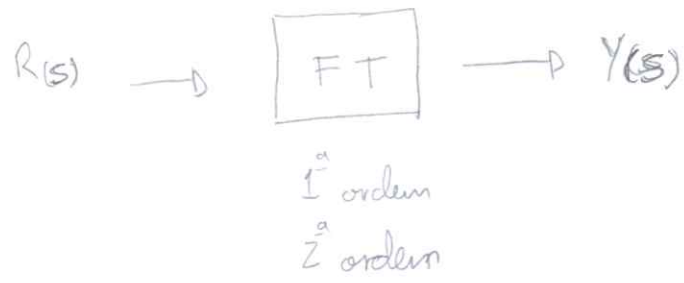 R(s) FT Y(s)
1ª ordem
2ª ordem